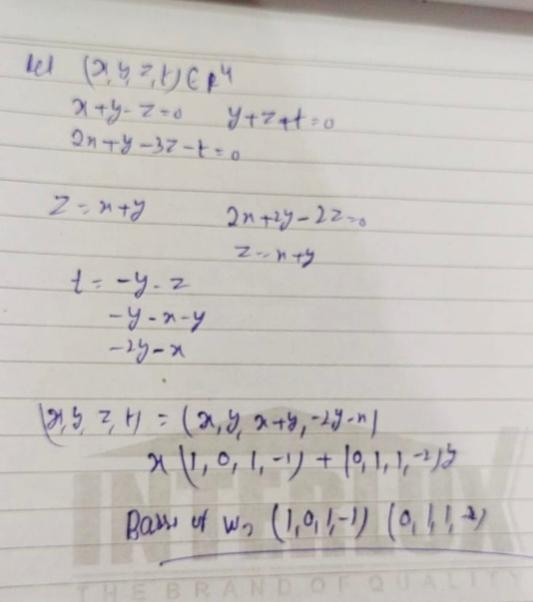 let (x, y, z, t) ∈ R⁴
x+y-z=0 y+z+t=0
2x+y-3z-t=0
z=x+y 2x+2y-2z=0
z=x+y
t = -y-z
-y-x-y
-2y-x
(x, y, z, t) = (x, y, x+y, -2y-x)
x(1, 0, 1, -1) + (0, 1, 1, -2)y
Basis of W= (1, 0, 1, -1) (0, 1, 1, -2)
INTERLUX
THE BRAND OF QUALITY